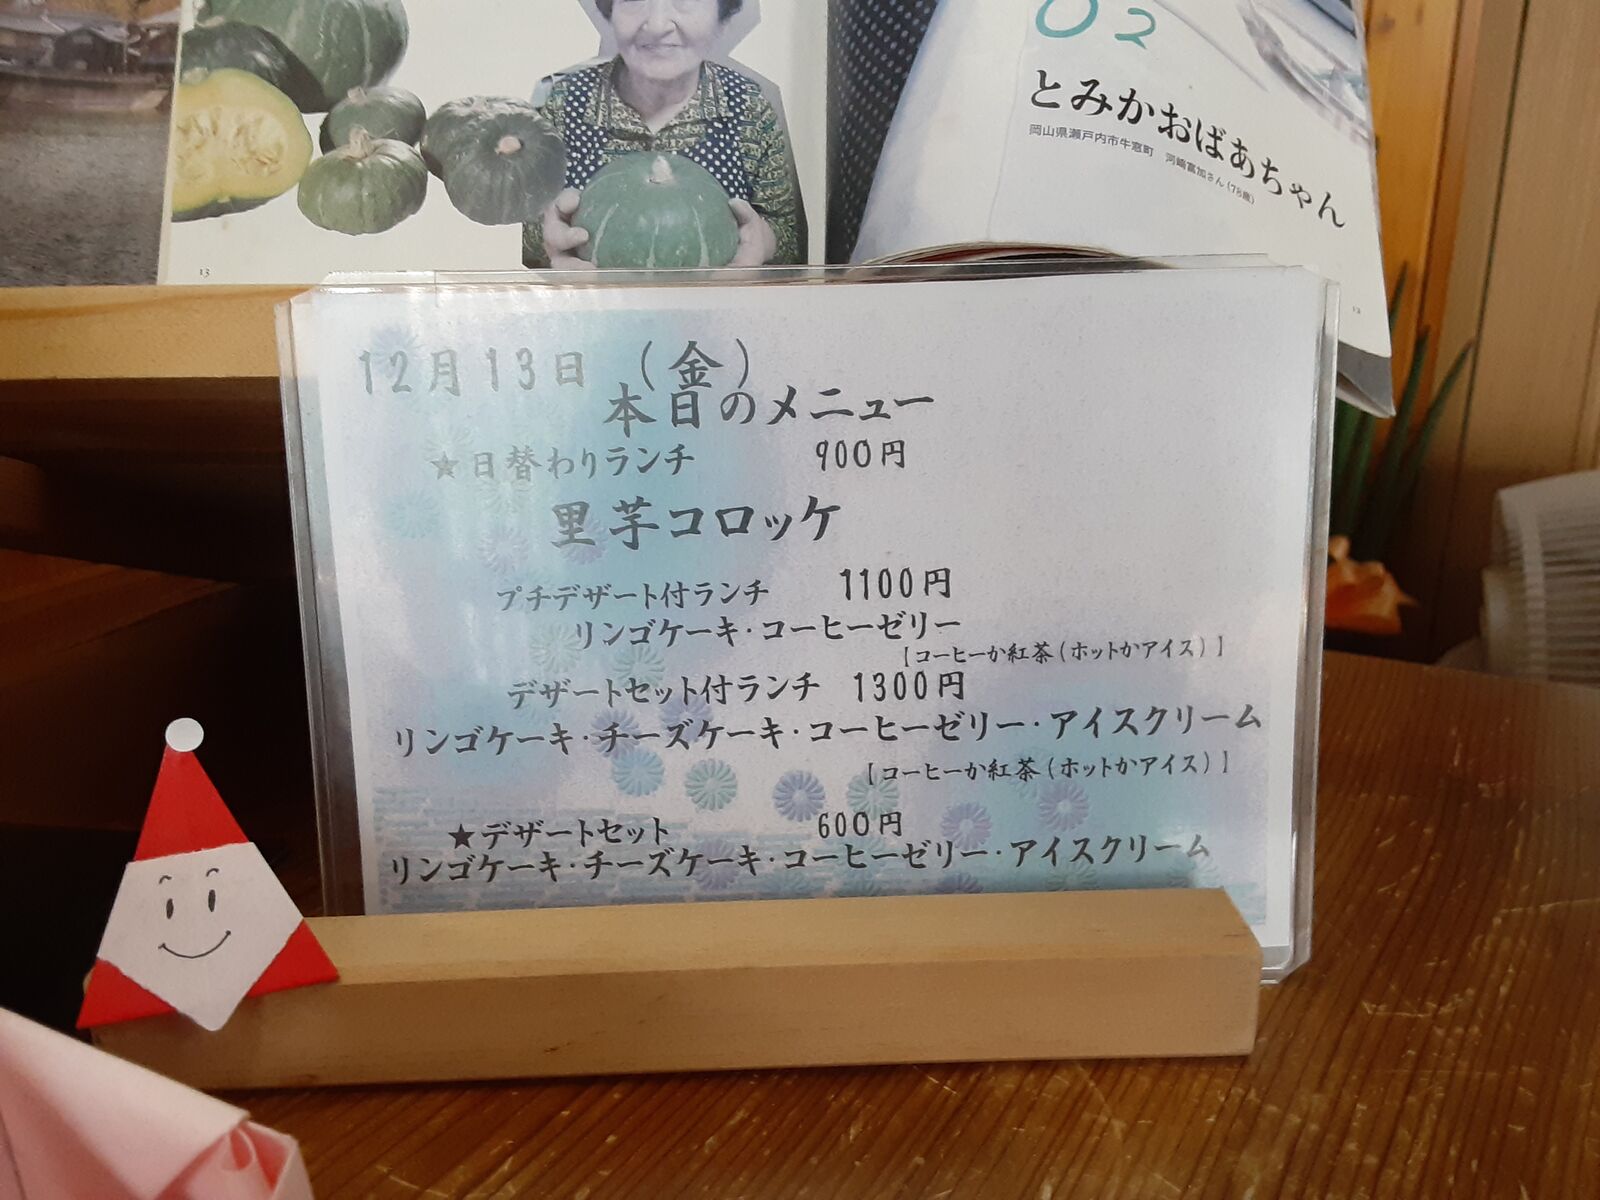 02
とみかおばあちゃん
岡山県瀬戸内市牛窓町 河崎富加さん(78歳)
13
12
12月13日 (金)
本日のメニュー
★日替わりランチ 900円
里芋コロッケ
プチデザート付ランチ 1100円
リンゴケーキ・コーヒーゼリー
【コーヒーか紅茶(ホットかアイス)】
デザートセット付ランチ 1300円
リンゴケーキ・チーズケーキ・コーヒーゼリー・アイスクリーム
【コーヒーか紅茶(ホットかアイス)】
★デザートセット 600円
リンゴケーキ・チーズケーキ・コーヒーゼリー・アイスクリーム